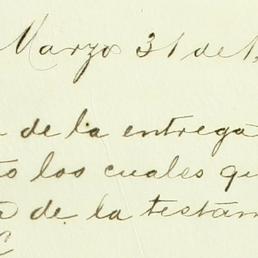 Marzo 31 de 1
de la entrega
to los cuales qu
de la testam